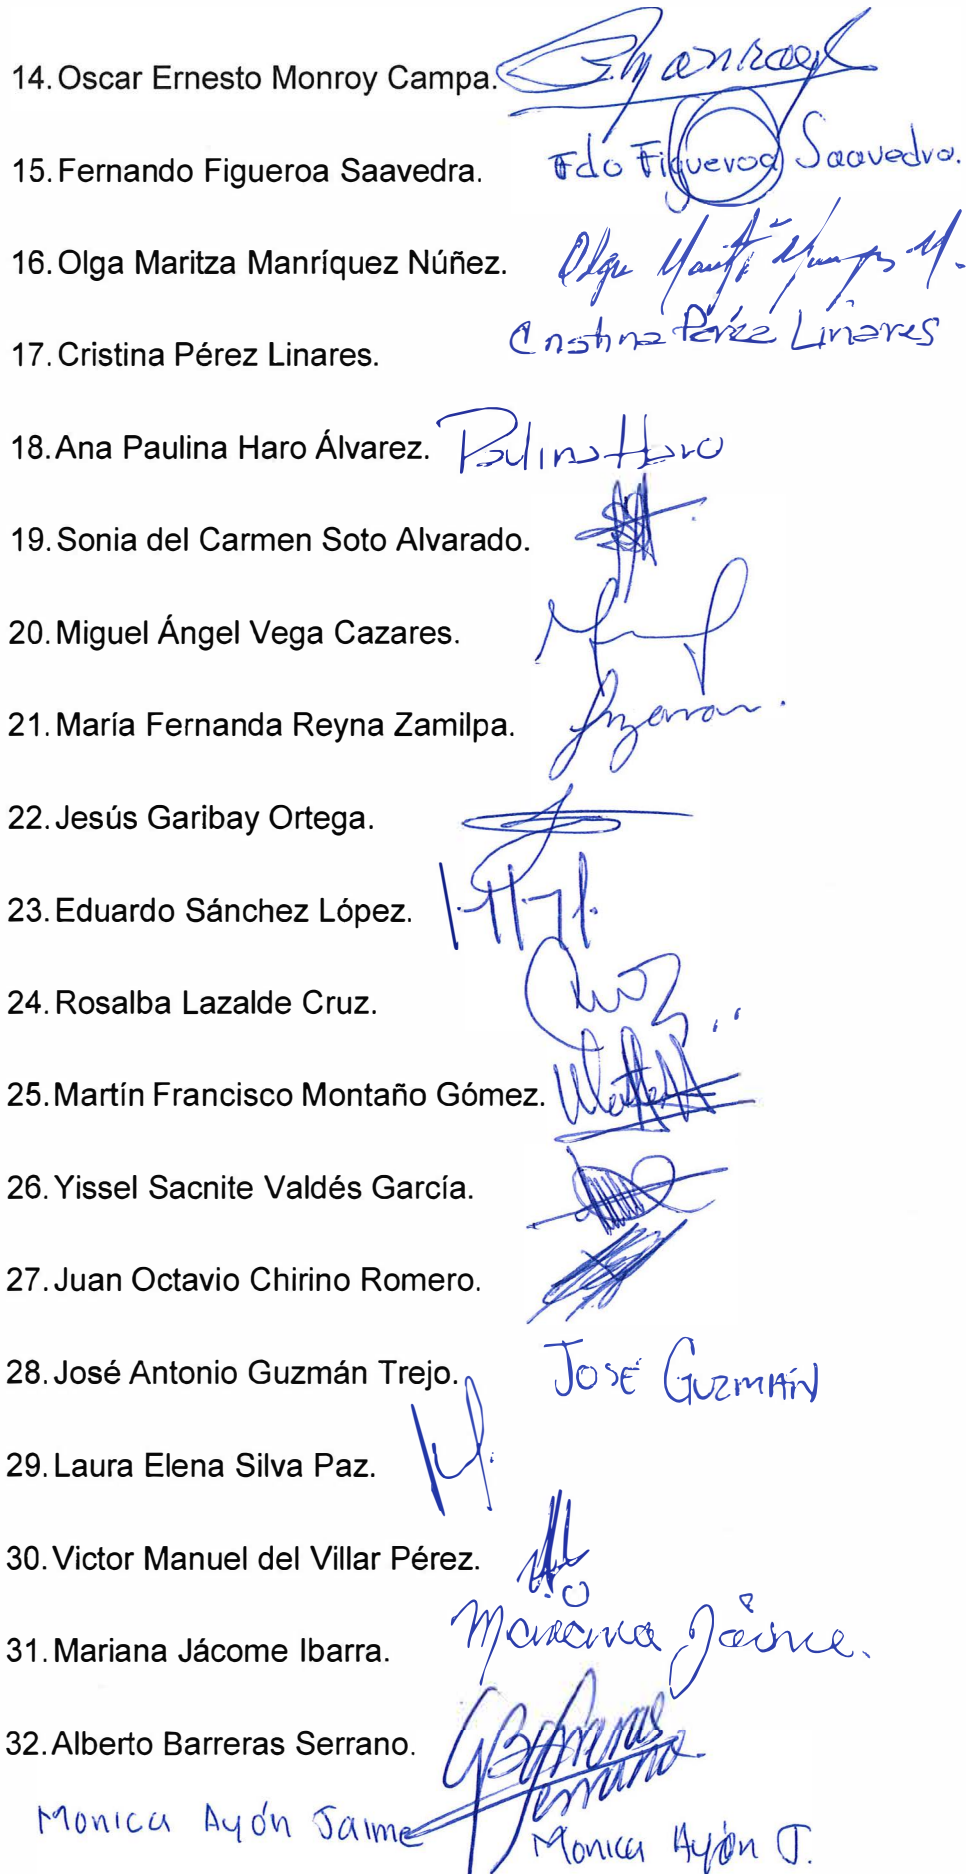 14. Oscar Ernesto Monroy Campa. Emonroy
15. Fernando Figueroa Saavedra. Fdo Figueroa Saavedra.
16. Olga Maritza Manríquez Núñez. Olga
17. Cristina Pérez Linares. Cristina Pérez Linares
18. Ana Paulina Haro Álvarez. Paulina Haro
19. Sonia del Carmen Soto Alvarado.
20. Miguel Ángel Vega Cazares.
21. María Fernanda Reyna Zamilpa.
22. Jesús Garibay Ortega.
23. Eduardo Sánchez López.
24. Rosalba Lazalde Cruz.
25. Martín Francisco Montaño Gómez.
26. Yissel Sacnite Valdés García.
27. Juan Octavio Chirino Romero.
28. José Antonio Guzmán Trejo. JOSÉ GUZMÁN
29. Laura Elena Silva Paz.
30. Victor Manuel del Villar Pérez.
31. Mariana Jácome Ibarra. Mariana Jácome.
32. Alberto Barreras Serrano. Barreras Serrano
Monica Ayón Jaime Monica Ayón J.